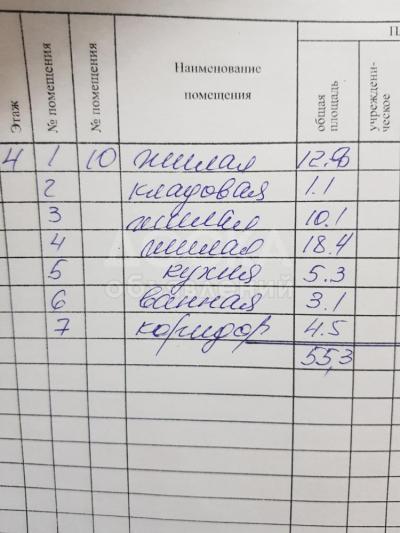 П
Этаж
№ помещения
№ помещения
Наименование
помещения
общая
площадь
учреждени-
ческое
4 1 10 жилая 12.8
2 кладовая 1.1
3 жилая 10.1
4 жилая 18.4
5 кухня 5.3
объявлений
6 ванная 3.1
7 коридор 4.5
55,3